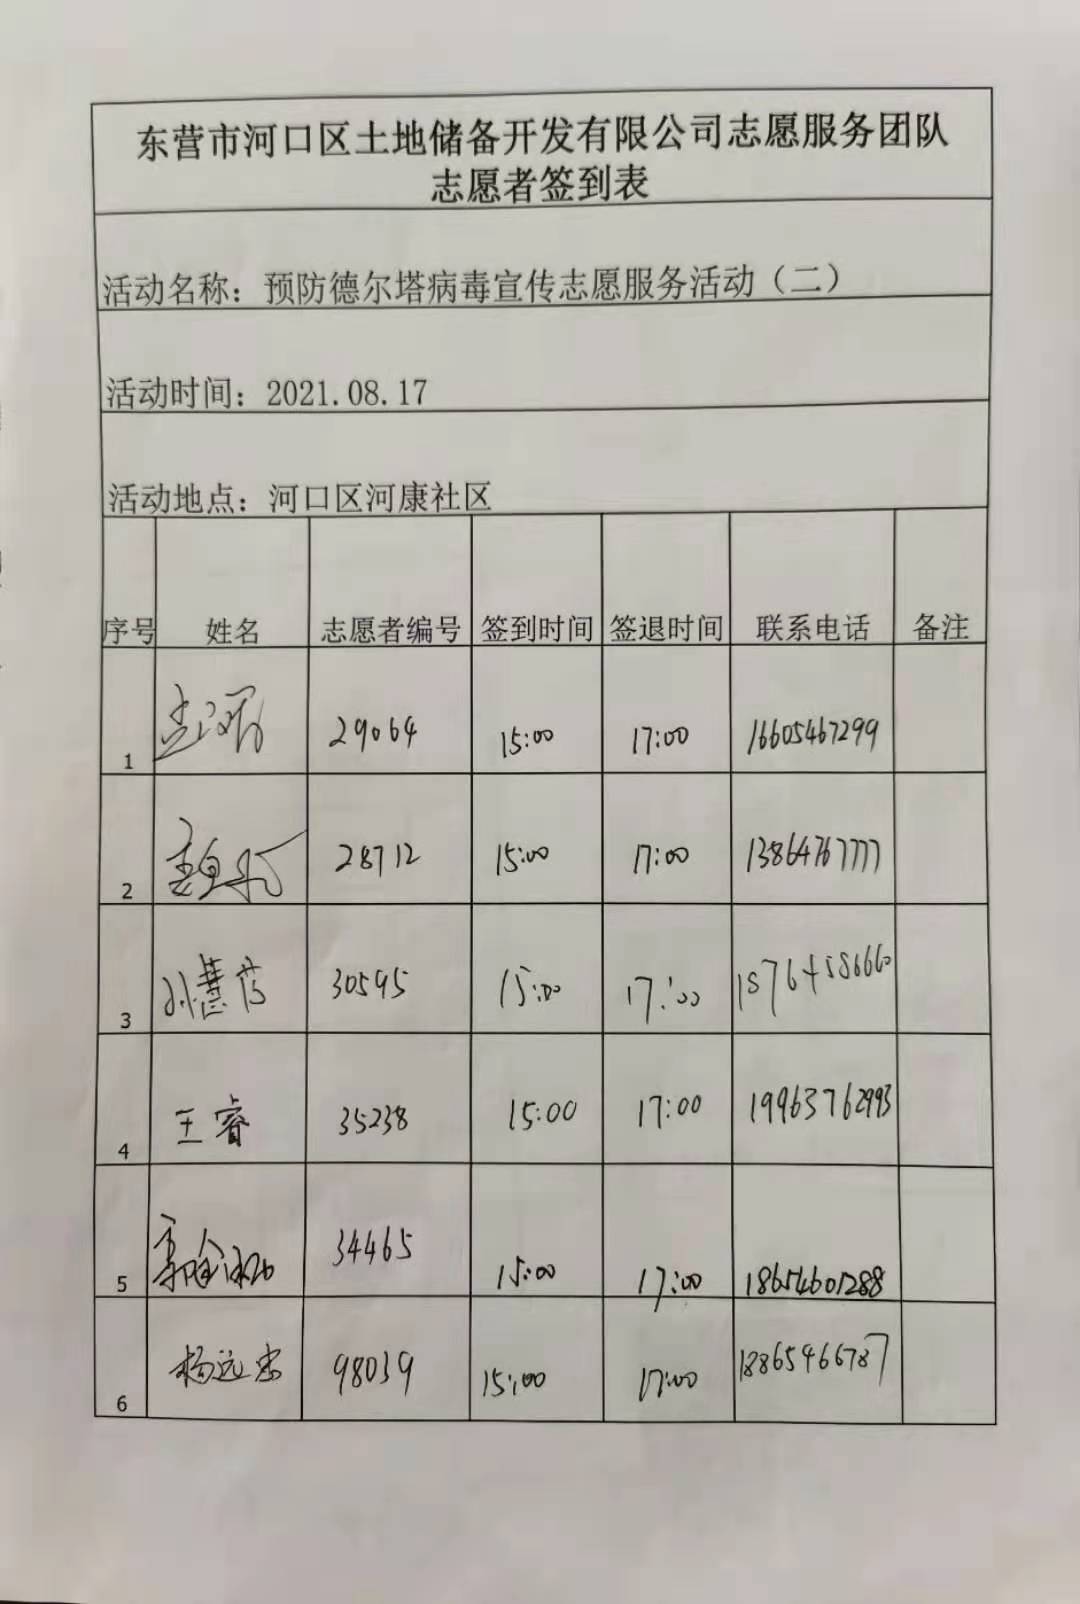 东营市河口区土地储备开发有限公司志愿服务团队
志愿者签到表
活动名称：预防德尔塔病毒宣传志愿服务活动（二）
活动时间：2021.08.17
活动地点：河口区河康社区
序号 姓名 志愿者编号 签到时间 签退时间 联系电话 备注
1 29064 15:00 17:00 16605467299
2 28712 15:00 17:00 13864767777
3 30595 15:00 17:00
4 王睿 35238 15:00 17:00 19963762993
5 34465 15:00 17:00 18654601288
6 杨远忠 98039 15:00 17:00 18865466787